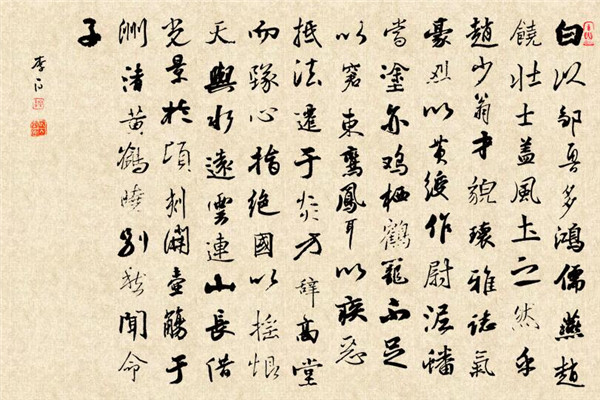 白以邹鲁多鴻儒燕趙
饒壮士盖風土之然乎
趙少翁才貌瓌雅誌氣
豪烈以黄綬作尉泥蟠
當塗亦鸡栖鶴籠不足
以窘束鸞鳳耳以疾惡
抵法遷于炎方辞高堂
而墜心指绝國以摇恨
天與水遠雲連山長借
光景於頃刻開壺觴于
洲渚黄鶴曉别愁聞命
子
李白